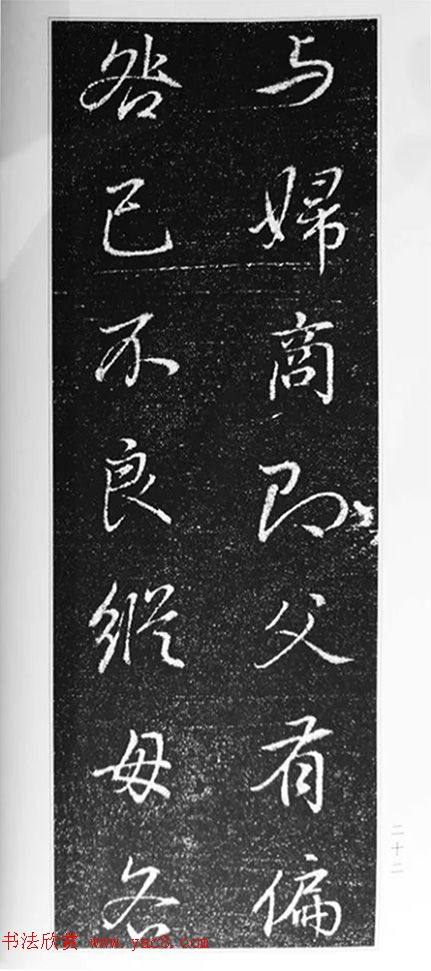 与婦商即父有偏
咎己不良縱母各
二十二
书法欣赏 www.yac8.com